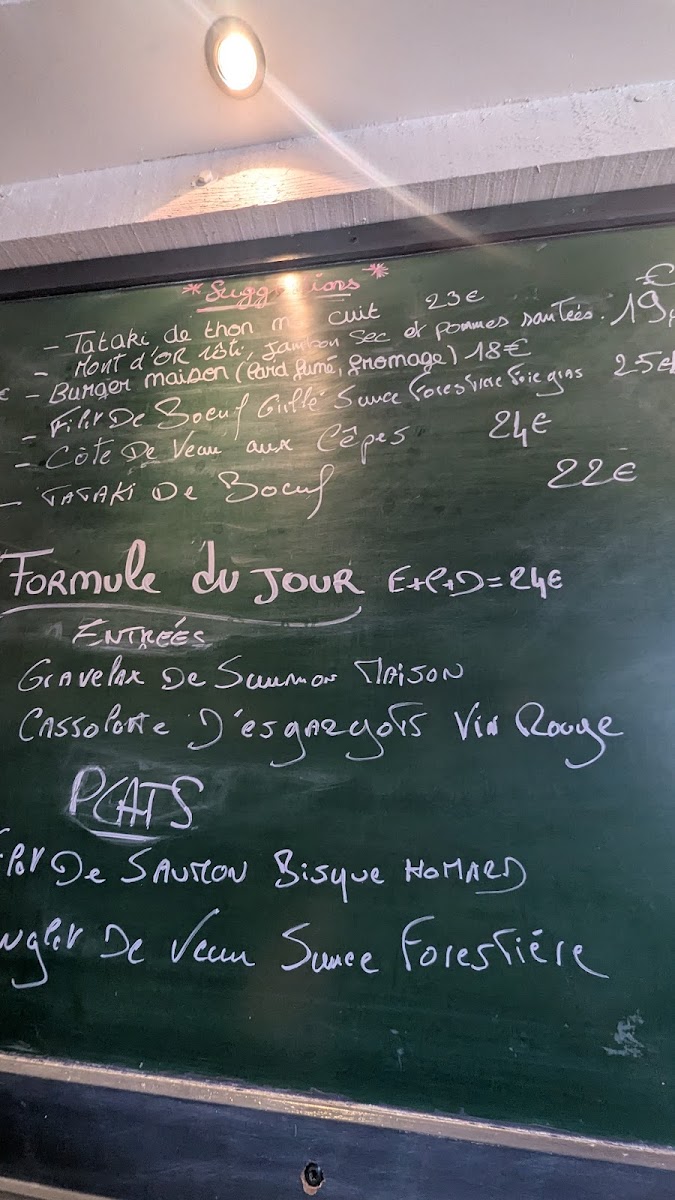 * Suggestions *
€
- Tataki de thon mi cuit 23€
- Mont d'OR rôti, jambon sec et pommes sautées. 19,
€ - Burger maison (lard fumé, fromage) 18€
- Filet De Boeuf Grillé Sauce Forestière Foie gras 25€
- Côte De Veau aux Cêpes 24€
- TATAKI De Boeuf 22€
FORMULE du JOUR E+P+D=24€
ENTREÉS
Gravelax De Saumon MAISON
CASSOLETTE D'esgargots Vin Rouge
PLATS
ilet De SAUMON Bisque HOMARD
nglet De Veau Sauce Forestière